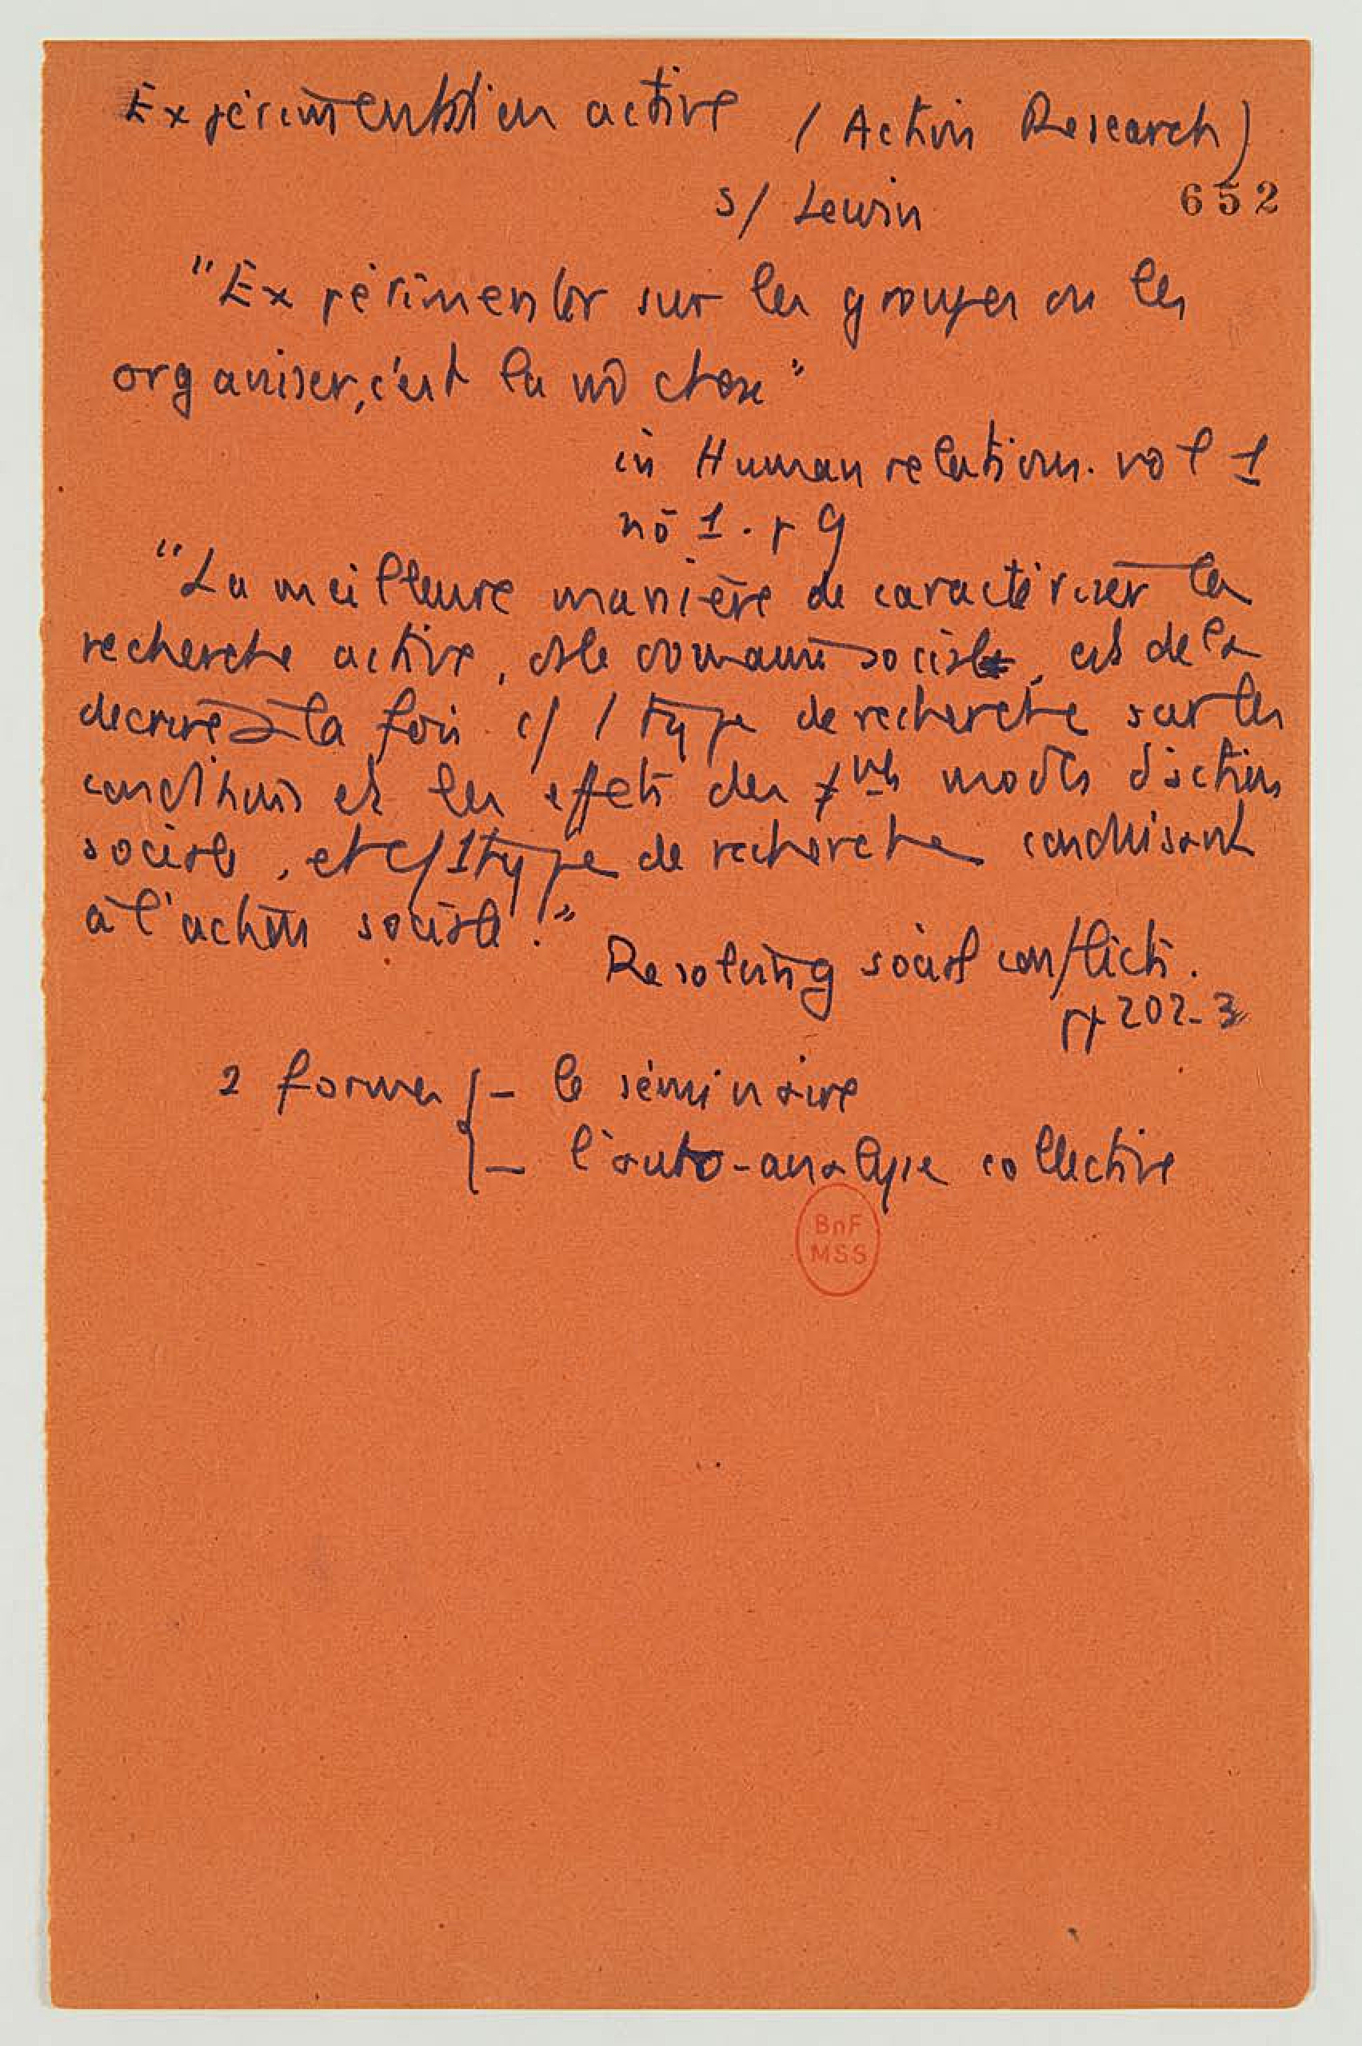 Expérimentation active (Action Research)
s/ Lewin
652
"Expérimenter sur les groupes ou les
organiser, c'est la m̂ chose"
in Human relations. vol 1
nō 1. p 9
"La meilleure manière de caractériser la
recherche active, ds le domaine social, est de la
décrire à la fois c/ 1 type de recherche sur les
conditions et les effets des modes d'action
sociale, et c/ 1 type de recherche conduisant
à l'action sociale."
Resolving social conflicts.
pp 202-3
2 formes { - le séminaire
- l'auto-analyse collective
BnF
MSS